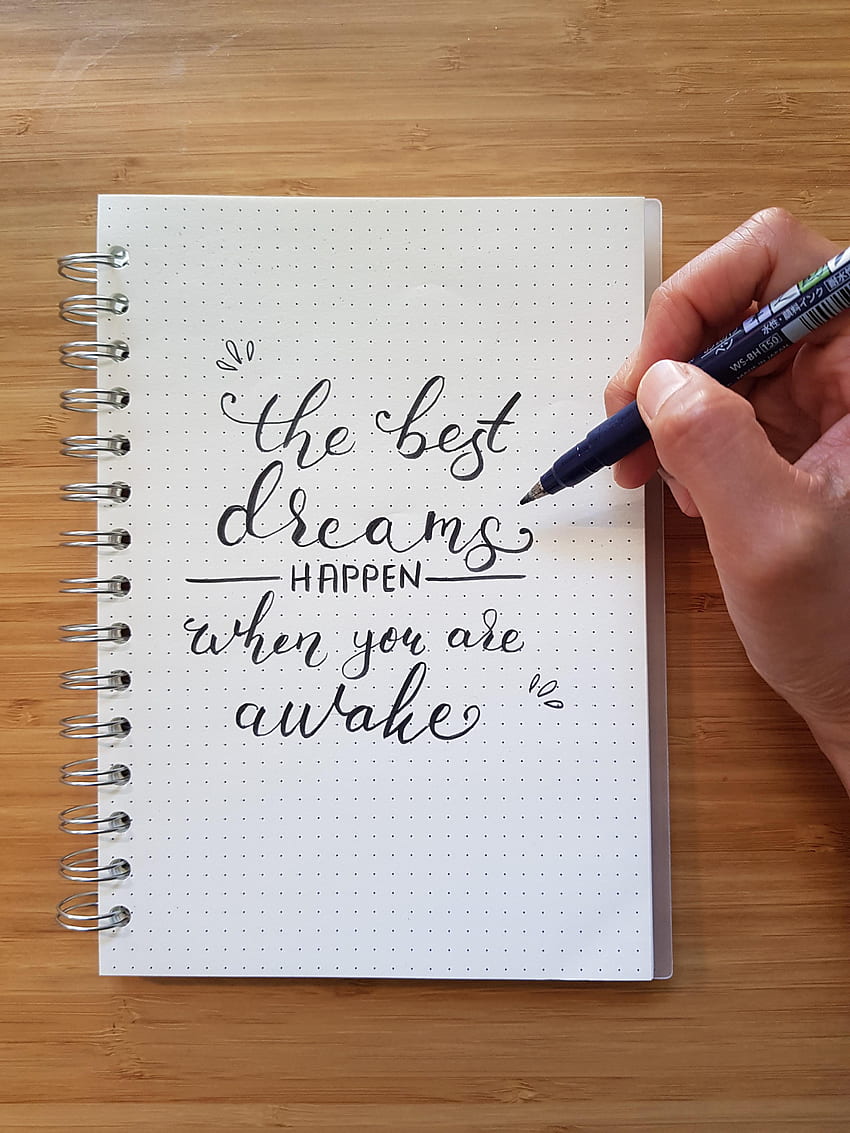 the best
dreams
HAPPEN
when you are
awake
ペン
水性・顔料インク
WS-BH 150